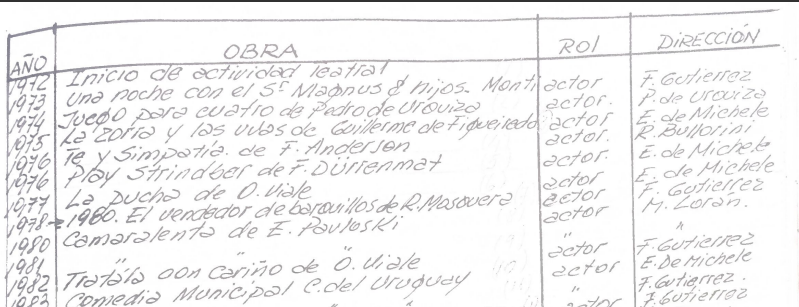 AÑO OBRA ROl DIRECCIÓN
1972 Inicio de actividad teatral
1973 Una noche con el Sr Magnus & hijos. Monti actor F. Gutierrez
1974 Juego para cuatro de Pedro de Urquiza actor. P. de Urquiza
1975 La zorra y las uvas de Guillerme de Figueiredo actor E. de Michele
1976 Te y Simpatía. de F. Anderson actor. R. Bullorini
1976 Play Strindber de F. Dürrenmat actor. E. de Michele
1977 La Ducha de O. Viale actor E. de Michele
1978-1980. El vendedor de barquillos de R. Mosquera actor F. Gutierrez
1980 Camaralenta de E. Pavloski actor M. Loran.
1981 " " "
1982 Tratala con cariño de O. Viale actor F. Gutierrez
1983 Comedia Municipal C. del Uruguay actor E. De Michele
" F. Gutierrez.
actor F. Gutierrez